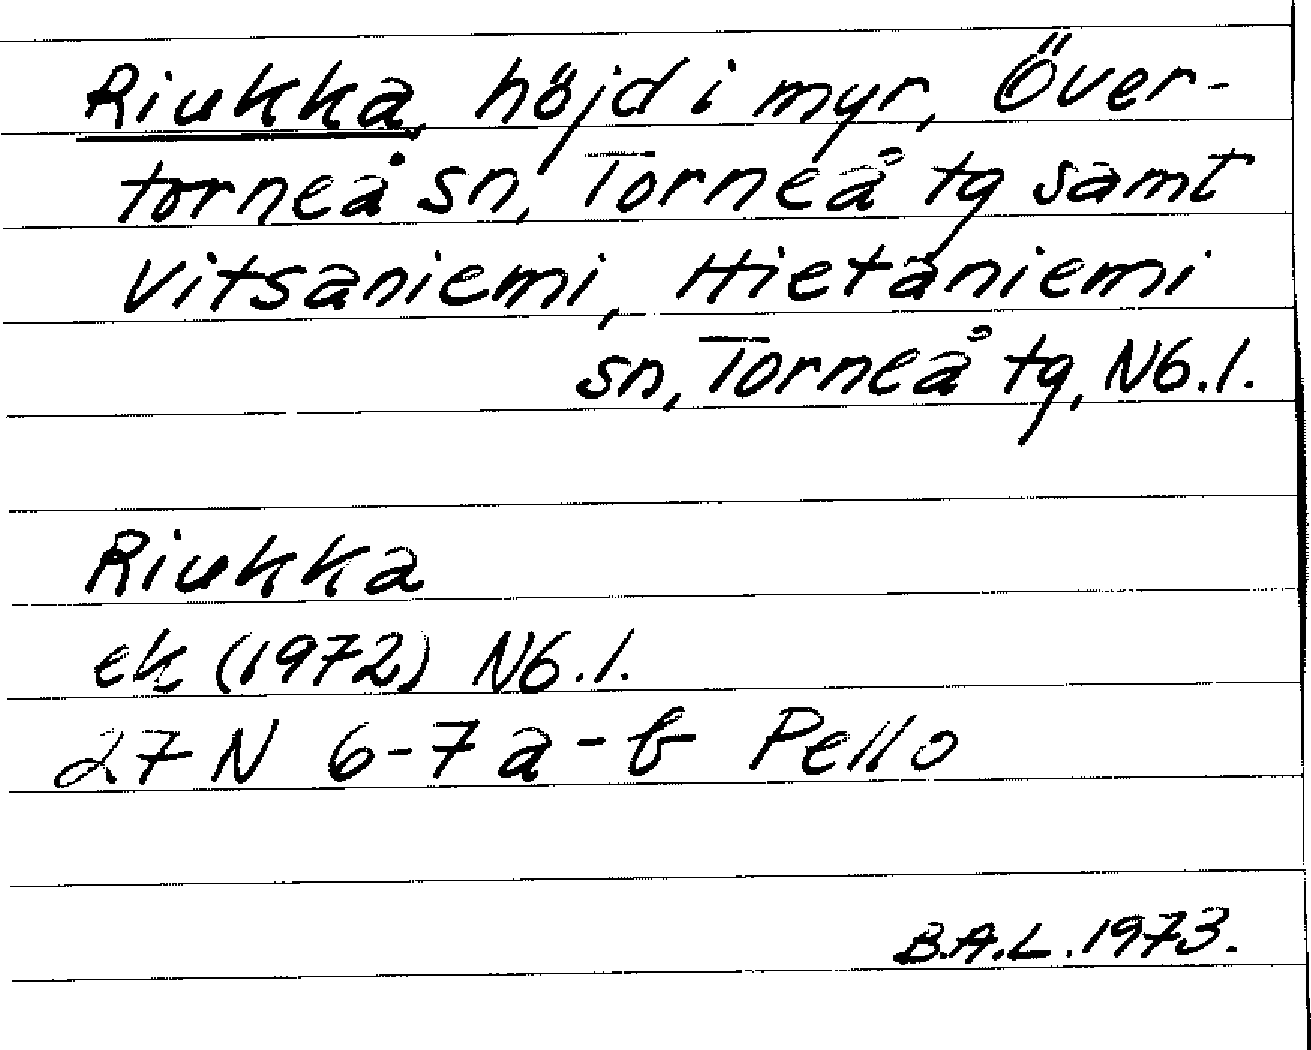 Riukka, höjd i myr, Över-
torneå sn, Torneå tg samt
Vitsaniemi, Hietaniemi
sn, Torneå tg, Nb.l.
Riukka
ek (1972) Nb.l.
27 N 6-7 a-b Pello
B.A.L. 1973.